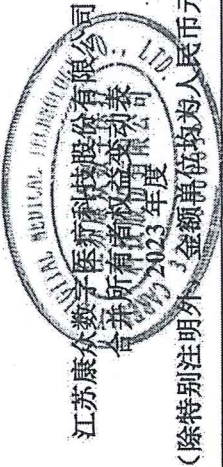 江苏康众数字医疗科技股份有限公司
合并所有者权益变动表
2023 年度
（除特别注明外，金额单位均为人民币元
MEDICAL
LTD